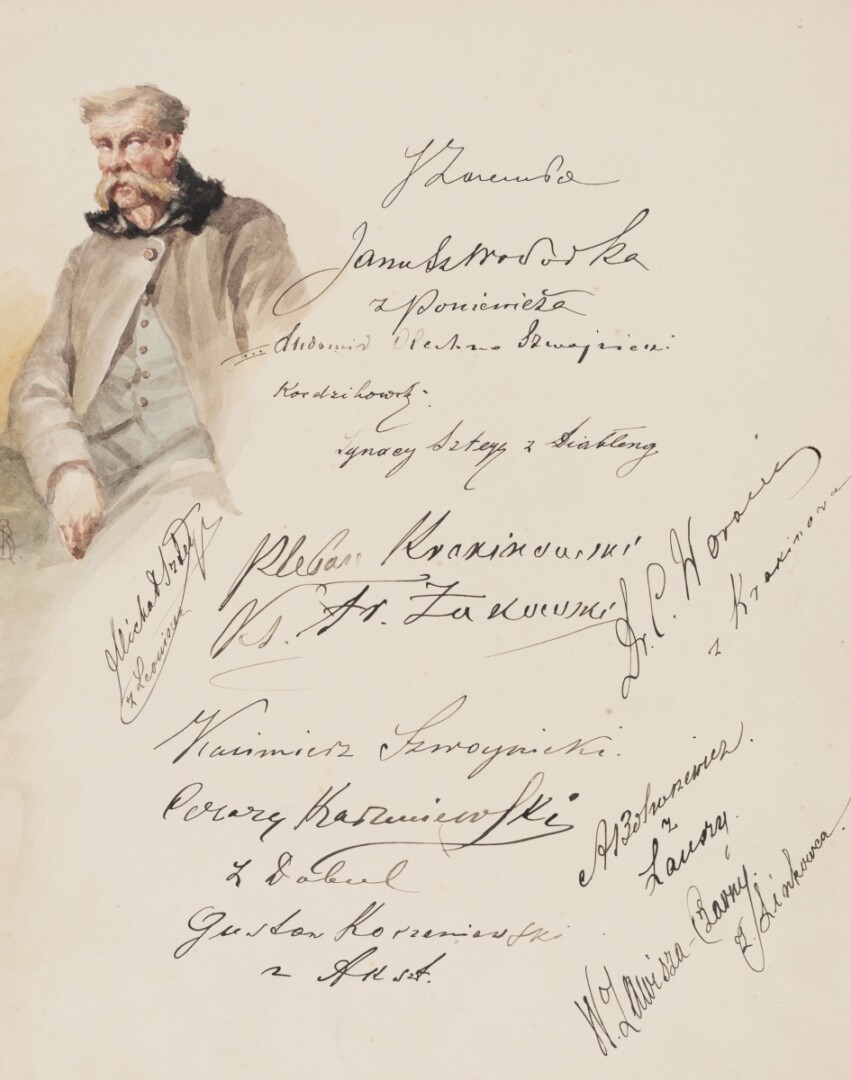 J Zaremba
Janusz Wodorka
z Poniewieża
Ludomir Olechno Szwoynicki
Kordzikowski
Ignacy Szteyn z
Pleban Krakinowski
Ks. Fr. Żukowski
Dr. C. Woraczek
z Krakinowa
Michał Sztey
z Leoniszek
Kazimierz Szwoynicki.
Cezary Kazimiewski
z Dobul
Gustaw Korzeniewski
z Akszt.
A Bohusewicz.
z
Laudy.
W. Zawisza-Czarny.
z Linkowca.